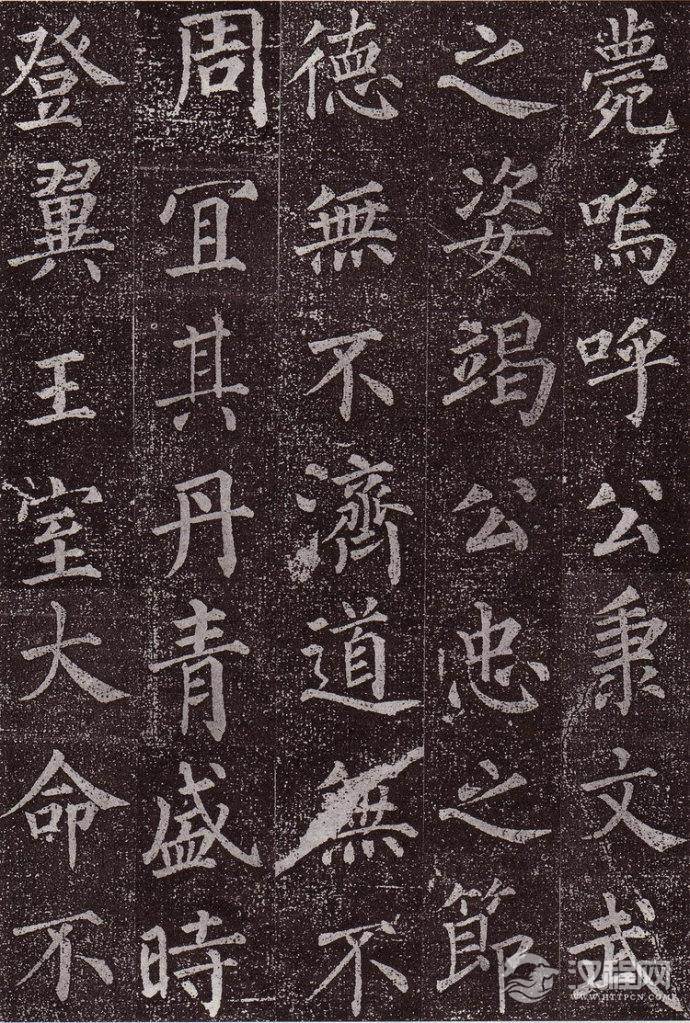 薨嗚呼公秉文武
之姿竭公忠之節
德無不濟道無不
周宜其丹青盛時
登翼王室大命不
汉程网
WWW.HTTPCN.COM